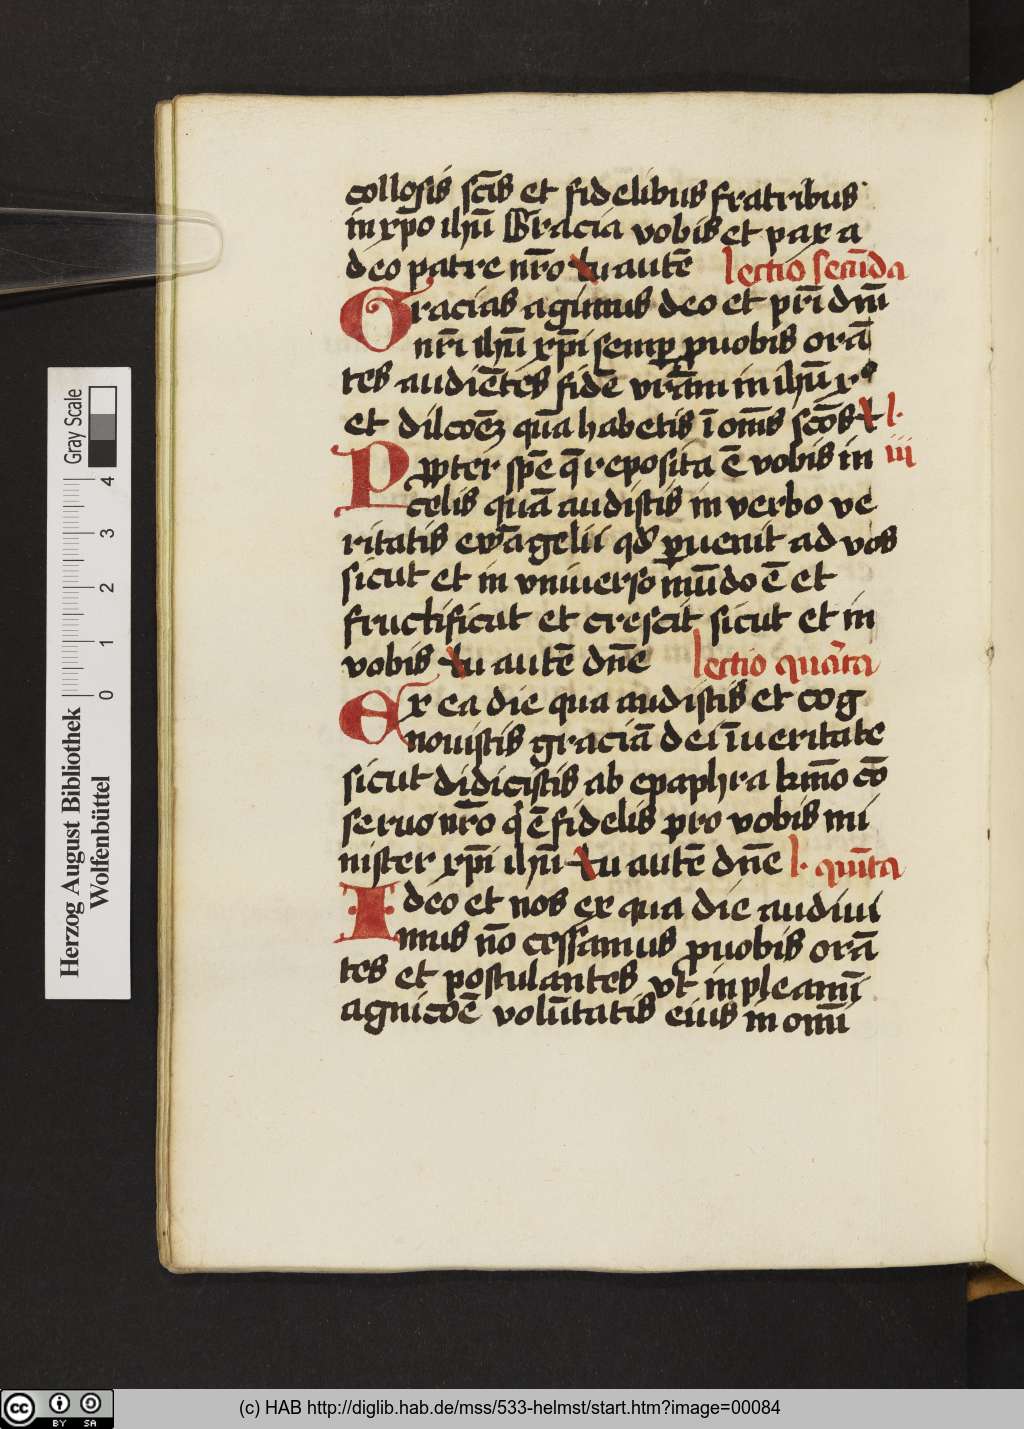 collosis sc̄is et fidelibus fratribus
in xp̄o ih̄u Gracia vobis et pax a
deo patre nr̄o tu autē lectio secūda
Gracias agimus deo et pr̄i dn̄i
nr̄i ih̄u xp̄i semp̲ ꝓ uobis orā
tes audiētes fidē vr̄am in ih̄u xº
et dilcōeꝫ quā habetis ī om̄s sc̄os t l·
Propter spē q̄ reposita ē vobis in iii
celis quā audistis in verbo ve
ritatis ewāgelii qd̕ ꝑuenit ad vos
sicut et in vniuerso mūdo ē et
fructificat et crescit sicut et in
vobis tu autē dn̄e lectio quārta
Ex ea die qua audistis et cog
nouistis graciā dei ī ueritate
sicut didicistis ab epaphra km̄o cō
seruo nr̄o q̇ ē fidelis pro vobis mi
nister xp̄i ih̄u tu autē dn̄e l· quīta
Ideo et nos ex qua die audiui
mus nō cessamus ꝓ uobis orā
tes et postulantes vt inpleamī
agnicōē volūtatis eius in om̄i
Herzog August Bibliothek
Wolfenbüttel
Gray Scale
0 1 2 3 4
cc BY SA
(c) HAB http://diglib.hab.de/mss/533-helmst/start.htm?image=00084